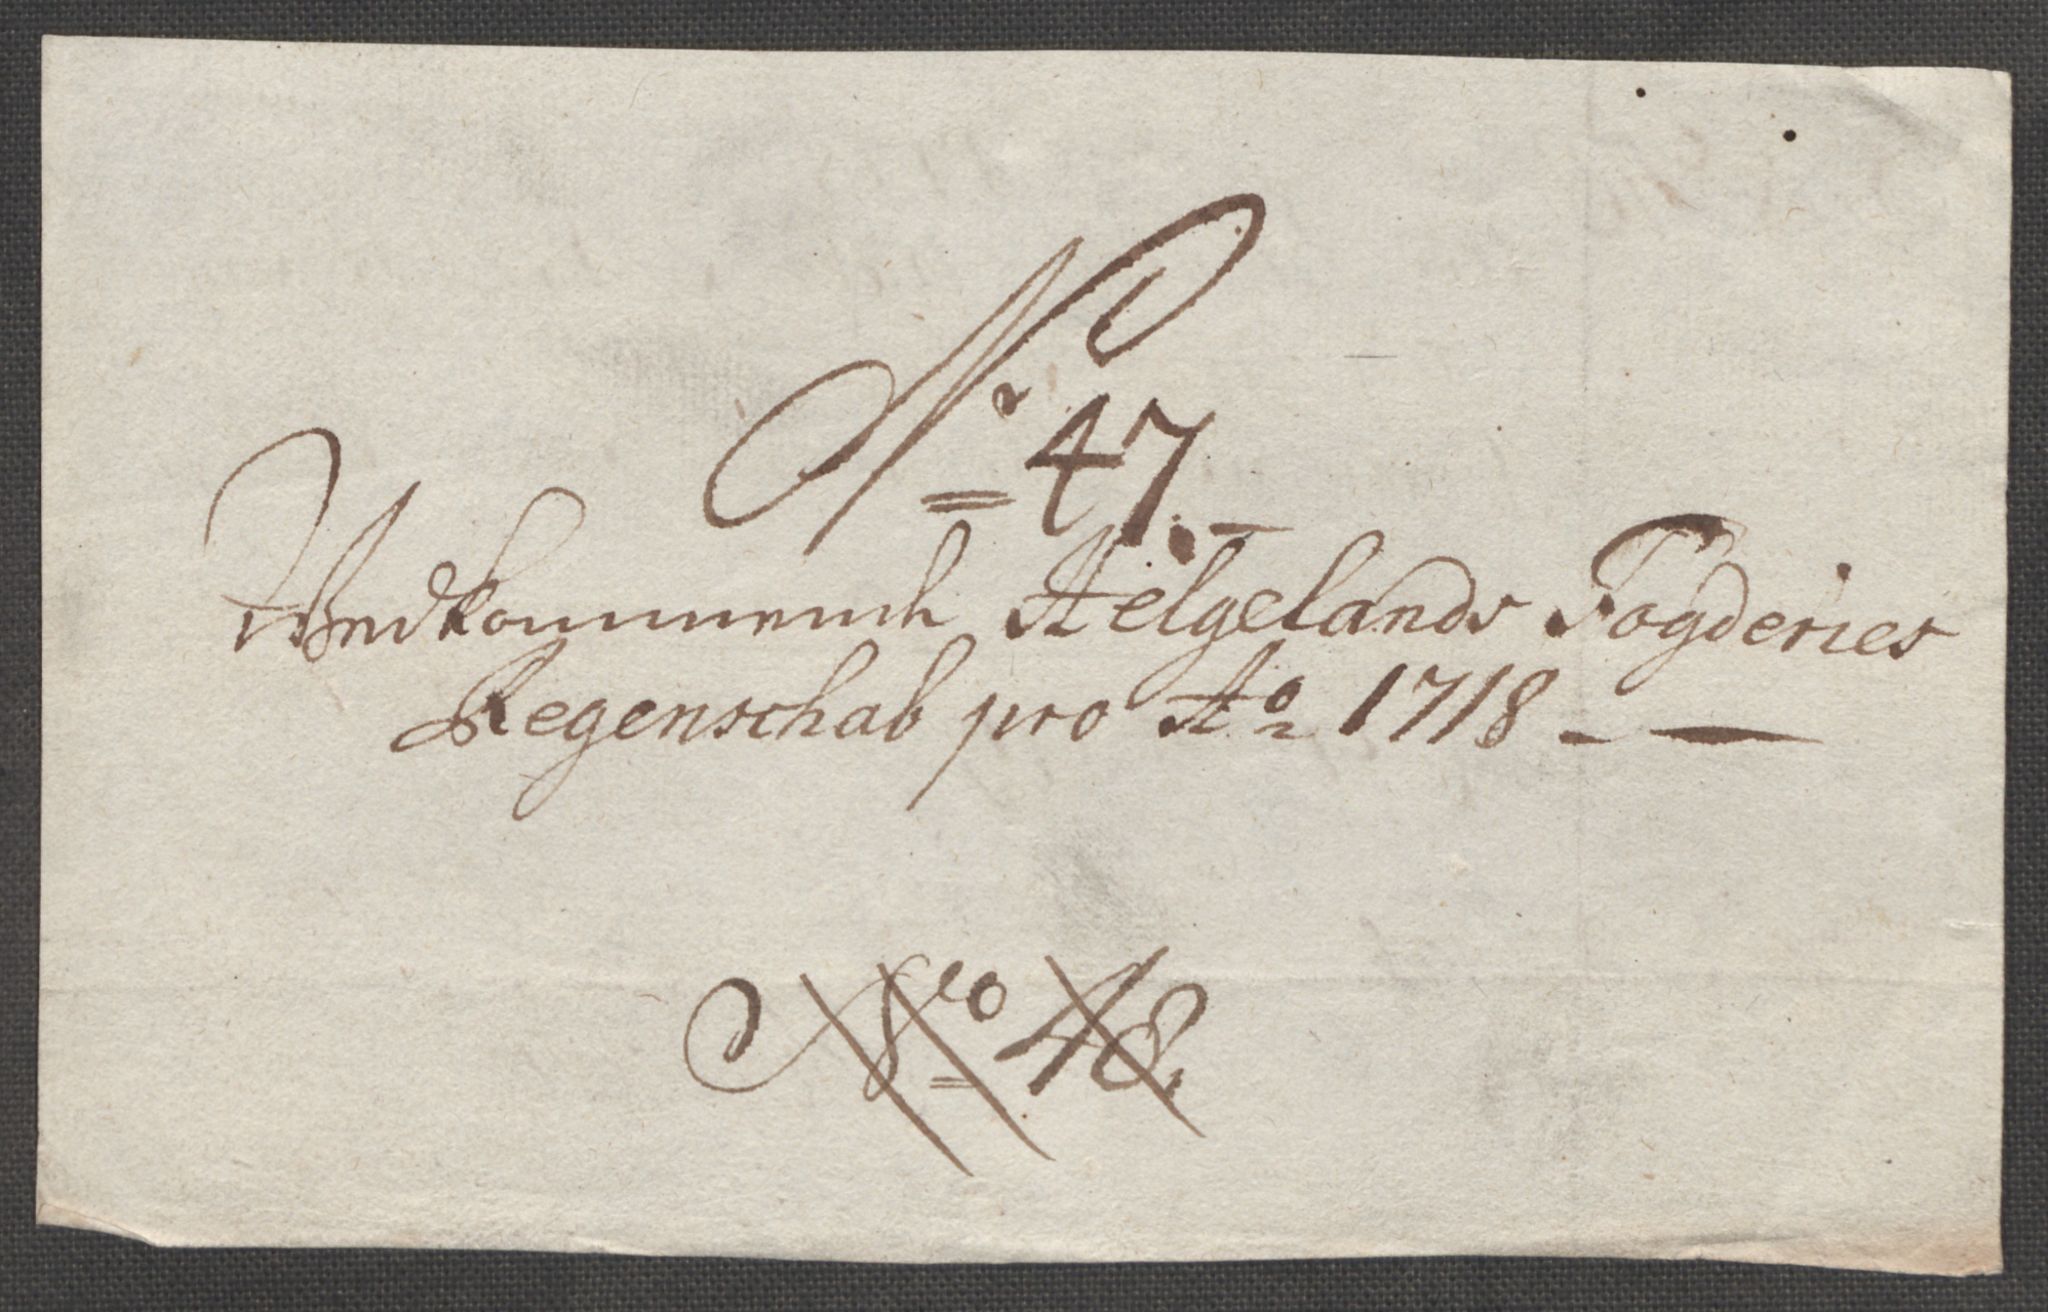 No 47.
Vedkommende Helgelands Fogderies
Regenschab pro Ao 1718
No 48.